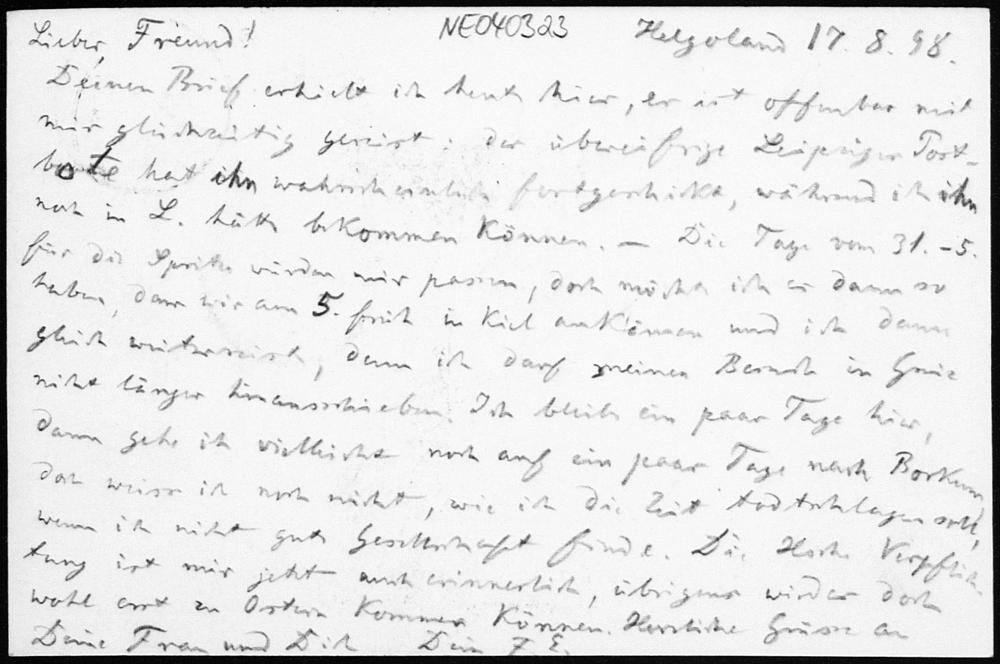 Lieber Freund! NE040323 Helgoland 17. 8. 98.
Deinen Brief erhielt ich heute hier, er ist offenbar mit
mir gleichzeitig gereist: der übereifrige Leipziger Post-
bote hat ihn wahrscheinlich fortgeschickt, während ich ihn
noch in L. hätte bekommen können. — Die Tage vom 31. – 5.
für die Spritze würden mir passen, doch möchte ich es dann so
haben, dass wir am 5. früh in Kiel ankämen und ich dann
gleich weiterreise, denn ich darf meinen Besuch in
nicht länger hinausschieben. Ich bleibe ein paar Tage hier,
dann gehe ich vielleicht noch auf ein paar Tage nach Borkum
doch weiss ich noch nicht, wie ich die Zeit todtschlagen soll,
wenn ich nicht gute Gesellschaft finde. Die Verpflich-
tung ist mir jetzt auch erinnerlich, übrigens wird er doch
wohl erst zu Ostern kommen können. Herzliche Grüsse an
Deine Frau und Dich Dein F. E.